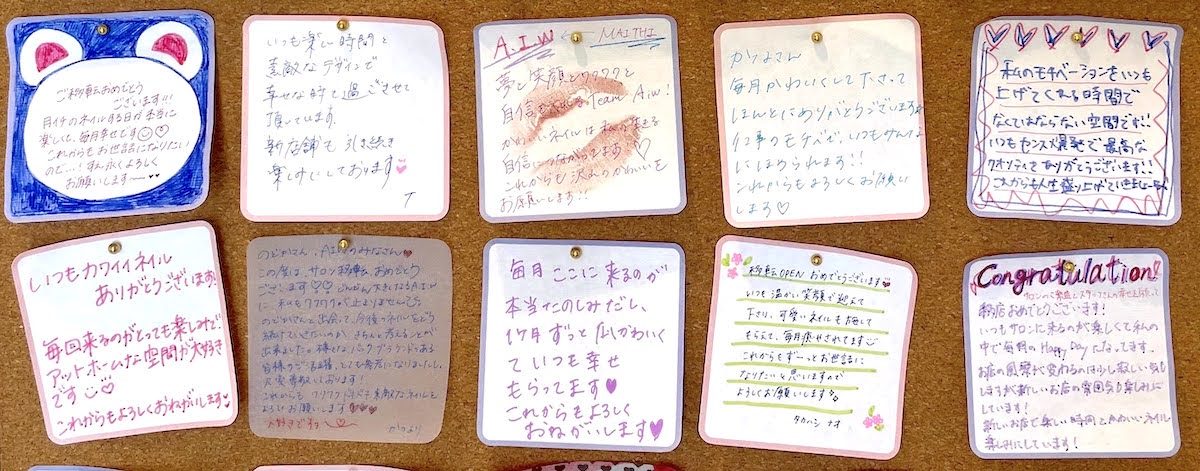 ご移転おめでとう
ございます!!!
月イチのネイルする日が本当に
楽しくて、毎月幸せです
これからもお世話になりたい
ので…!すえ永くよろしく
お願いします〜
いつも楽しい時間と
素敵なデザインで
幸せな時で過ごさせて
頂いてます。
新店舗も引き続き
楽しみにしております
T
A.I.W ← MAITHI
夢と笑顔とワクワクと
自信を Team Aiw!
かわいいネイルは私の
自信につながってます♡
これからも沢山のかわいいを
お願いします!!
かなさん
毎月かわいくして下さって
ほんとにありがとうございます
仕事のモチベで、いつもサロンは
にほめられます!!
これからもよろしくお願い
します♡
私のモチベーションをいつも
上げてくれる時間で
なくてはならない空間です!!
いつもセンス爆発で最高な
クオリティでありがとうございます!!
これからも人生盛り上げていきましょー
いつもカワイイネイル
ありがとうございます!
毎回来るのがとっても楽しみで
アットホームな空間が大好き
です♡
これからもよろしくおねがいします
のどかさん、AIWのみなさん♥
この度は、サロン移転おめでとう
ございます♡♡
に 私もワクワクが止まりません
のどかさんと出会って、今後ネイルをどう
続けて
出来ました。様々なバックグラウンドのある
皆様の
大変尊敬しております!
これからも ワクワク 素敵なネイルを
よろしくお願いします
大好きです
かつより
毎月ここに来るのが
本当たのしみだし、
1ヶ月ずっと爪がかわいく
ていつも幸せ
もらってます♥
これからもよろしく
おねがいします♥
移転OPENおめでとうございます♥
いつも温かい笑顔で迎えて
下さり、可愛いネイルも施して
もらえて、毎月癒されてます
これからもずーっとお世話に
なりたいと思いますので
よろしくお願いします
タカハシ ナオ
Congratulation!
サロンのご繁盛とスタッフさんの幸せを願って
新店おめでとうございます!
いつもサロンに来るのが楽しくて私の
中で毎月のHappy Dayになってます。
お店の風景が変わるのは少し寂しい気も
しますが新しいお店の雰囲気も楽しみに
しています!
新しいお店で楽しい時間とかわいいネイル
楽しみにしています!